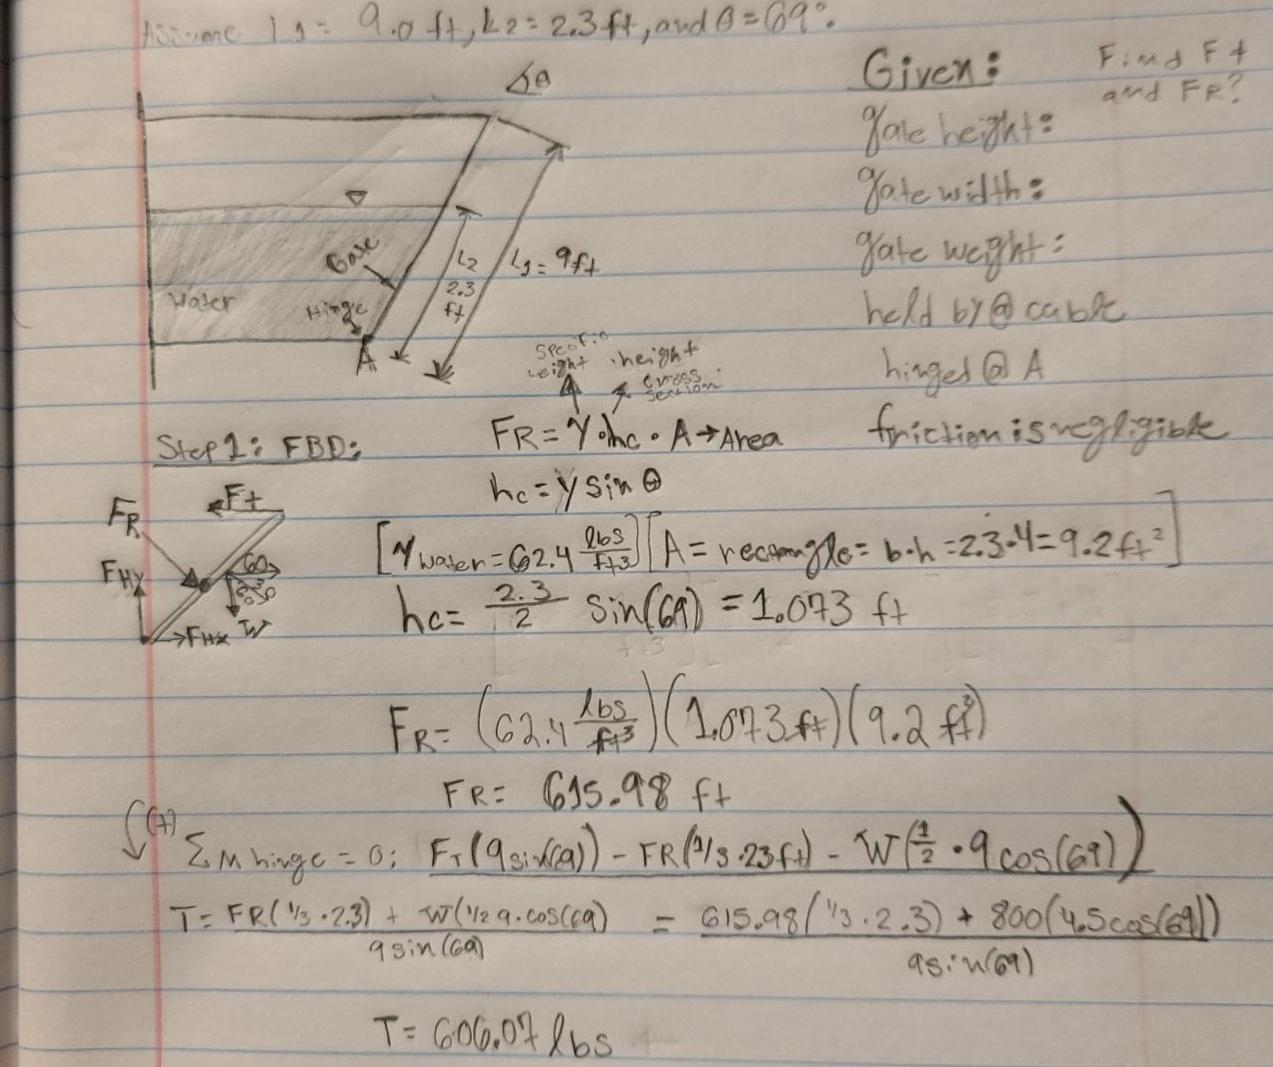 Assume L1 = 9.0 ft, L2 = 2.3 ft, and θ = 69°.
Given:
Find Ft and FR?
gate height:
gate width:
gate weight:
held by @ cable
hinged @ A
friction is negligible
θ
Gate
Water
Hinge
A
L2
2.3
ft
L1 = 9ft
specific weight
height
cross section
Step 1: FBD:
FR = γ · hc · A → Area
hc = y sin θ
FR
Ft
FHy
FHx
W
[γ water = 62.4 lbs/ft3] [A = rectangle = b·h = 2.3·4 = 9.2 ft²]
hc = 2.3/2 sin(69) = 1.073 ft
FR = (62.4 lbs/ft3)(1.073 ft)(9.2 ft3)
FR = 615.98 ft
(+) ΣM hinge = 0: FT(9sin(69)) - FR(1/3·23ft) - W(1/2 · 9 cos(69))
T = FR(1/3·2.3) + W(1/2 9·cos(69) / 9 sin(69) = 615.98(1/3·2.3) + 800(4.5cos(69)) / 9sin(69)
T = 606.07 lbs